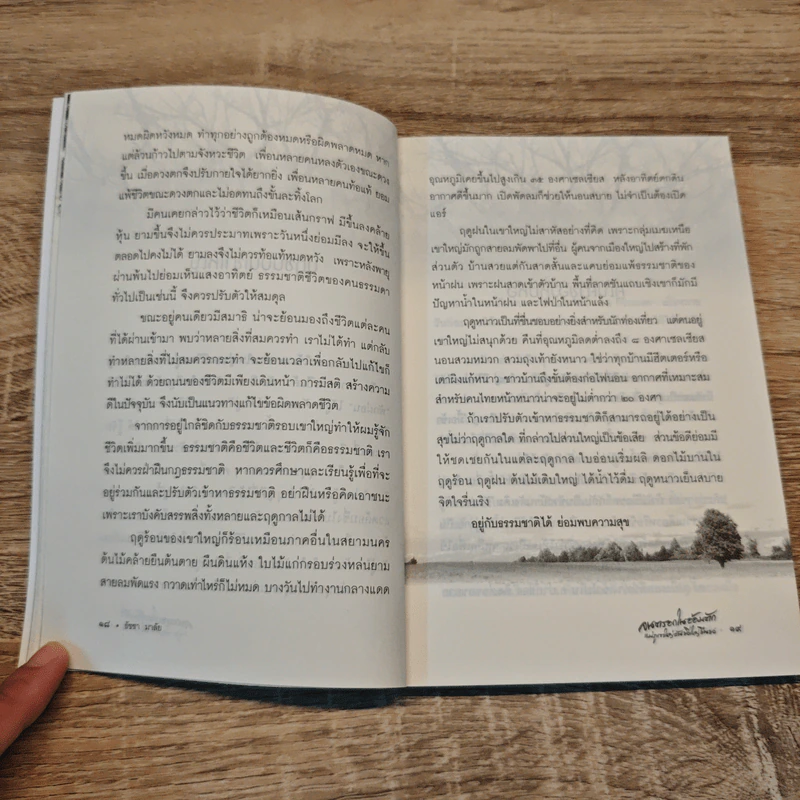 หมดผิดหวังหมด ทำทุกอย่างถูกต้องหมดหรือผิดพลาดหมด หาก
แต่ล้วนก้าวไปตามจังหวะชีวิต เพื่อนหลายคนหลงตัวเองขณะดวง
ขึ้น เมื่อดวงตกจึงปรับกายใจได้ยากยิ่ง เพื่อนหลายคนท้อแท้ ยอม
แพ้ชีวิตขณะดวงตกและไม่อดทนถึงขั้นละทิ้งโลก
มีคนเคยกล่าวไว้ว่าชีวิตก็เหมือนเส้นกราฟ มีขึ้นลงคล้าย
หุ้น ยามขึ้นจึงไม่ควรประมาทเพราะวันหนึ่งย่อมมีลง จะให้ขึ้น
ตลอดไปคงไม่ได้ ยามลงจึงไม่ควรท้อแท้หมดหวัง เพราะหลังพายุ
ผ่านพ้นไปย่อมเห็นแสงอาทิตย์ ธรรมชาติชีวิตของคนธรรมดา
ทั่วไปเป็นเช่นนี้ จึงควรปรับตัวให้สมดุล
ขณะอยู่คนเดียวมีสมาธิ น่าจะย้อนมองถึงชีวิตแต่ละคน
ที่ได้ผ่านเข้ามา พบว่าหลายสิ่งที่สมควรทำ เราไม่ได้ทำ แต่กลับ
ทำหลายสิ่งที่ไม่สมควรกระทำ จะย้อนเวลาเพื่อกลับไปแก้ไขก็
ทำไม่ได้ ด้วยถนนของชีวิตมีเพียงเดินหน้า การมีสติ สร้างความ
ดีในปัจจุบัน จึงนับเป็นแนวทางแก้ไขข้อผิดพลาดชีวิต
จากการอยู่ใกล้ชิดกับธรรมชาติรอบเขาใหญ่ทำให้ผมรู้จัก
ชีวิตเพิ่มมากขึ้น ธรรมชาติคือชีวิตและชีวิตก็คือธรรมชาติ เรา
จึงไม่ควรฝ่าฝืนกฎธรรมชาติ หากควรศึกษาและเรียนรู้เพื่อที่จะ
อยู่ร่วมกันและปรับตัวเข้าหาธรรมชาติ อย่าฝืนหรือคิดเอาชนะ
เพราะเราบังคับสรรพสิ่งทั้งหลายและฤดูกาลไม่ได้
ฤดูร้อนของเขาใหญ่ก็ร้อนเหมือนภาคอื่นในสยามนคร
ต้นไม้คล้ายยืนต้นตาย ผืนดินแห้ง ใบไม้แก่กรอบร่วงหล่นยาม
สายลมพัดแรง กวาดเท่าไหร่ก็ไม่หมด บางวันไปทำงานกลางแดด
๑๘ • รัชชา มาลัย
อุณหภูมิเคยขึ้นไปสูงเกิน ๓๕ องศาเซลเซียส หลังอาทิตย์ตกดิน
อากาศดีขึ้นมาก เปิดพัดลมก็ช่วยให้นอนสบาย ไม่จำเป็นต้องเปิด
แอร์
ฤดูฝนในเขาใหญ่ไม่สาหัสอย่างที่คิด เพราะกลุ่มเมฆเหนือ
เขาใหญ่มักถูกสายลมพัดพาไปที่อื่น ผู้คนจากเมืองใหญ่ไปสร้างที่พัก
ส่วนตัว บ้านสวยแต่กันสาดสั้นและแคบย่อมแพ้ธรรมชาติของ
หน้าฝน เพราะฝนสาดเข้าตัวบ้าน พื้นที่ลาดชันแถบเชิงเขาก็มักมี
ปัญหาน้ำในหน้าฝน และไฟป่าในหน้าแล้ง
ฤดูหนาวเป็นที่ชื่นชอบอย่างยิ่งสำหรับนักท่องเที่ยว แต่คนอยู่
เขาใหญ่ไม่สนุกด้วย คืนที่อุณหภูมิลดต่ำลงถึง ๘ องศาเซลเซียส
นอนสวมหมวก สวมถุงเท้ายังหนาว ใช่ว่าทุกบ้านมีฮีตเตอร์หรือ
เตาผิงแก้หนาว ชาวบ้านถึงขั้นต้องก่อไฟนอน อากาศที่เหมาะสม
สำหรับคนไทยหน้าหนาวน่าจะอยู่ไม่ต่ำกว่า ๒๐ องศา
ถ้าเราปรับตัวเข้าหาธรรมชาติก็สามารถอยู่ได้อย่างเป็น
สุขไม่ว่าฤดูกาลใด ที่กล่าวไปส่วนใหญ่เป็นข้อเสีย ส่วนข้อดีย่อมมี
ให้ชดเชยกันในแต่ละฤดูกาล ใบอ่อนเริ่มผลิ ดอกไม้บานใน
ฤดูร้อน ฤดูฝน ต้นไม้เติบใหญ่ ได้น้ำไว้ดื่ม ฤดูหนาวเย็นสบาย
จิตใจรื่นเริง
อยู่กับธรรมชาติได้ ย่อมพบความสุข
๑๙